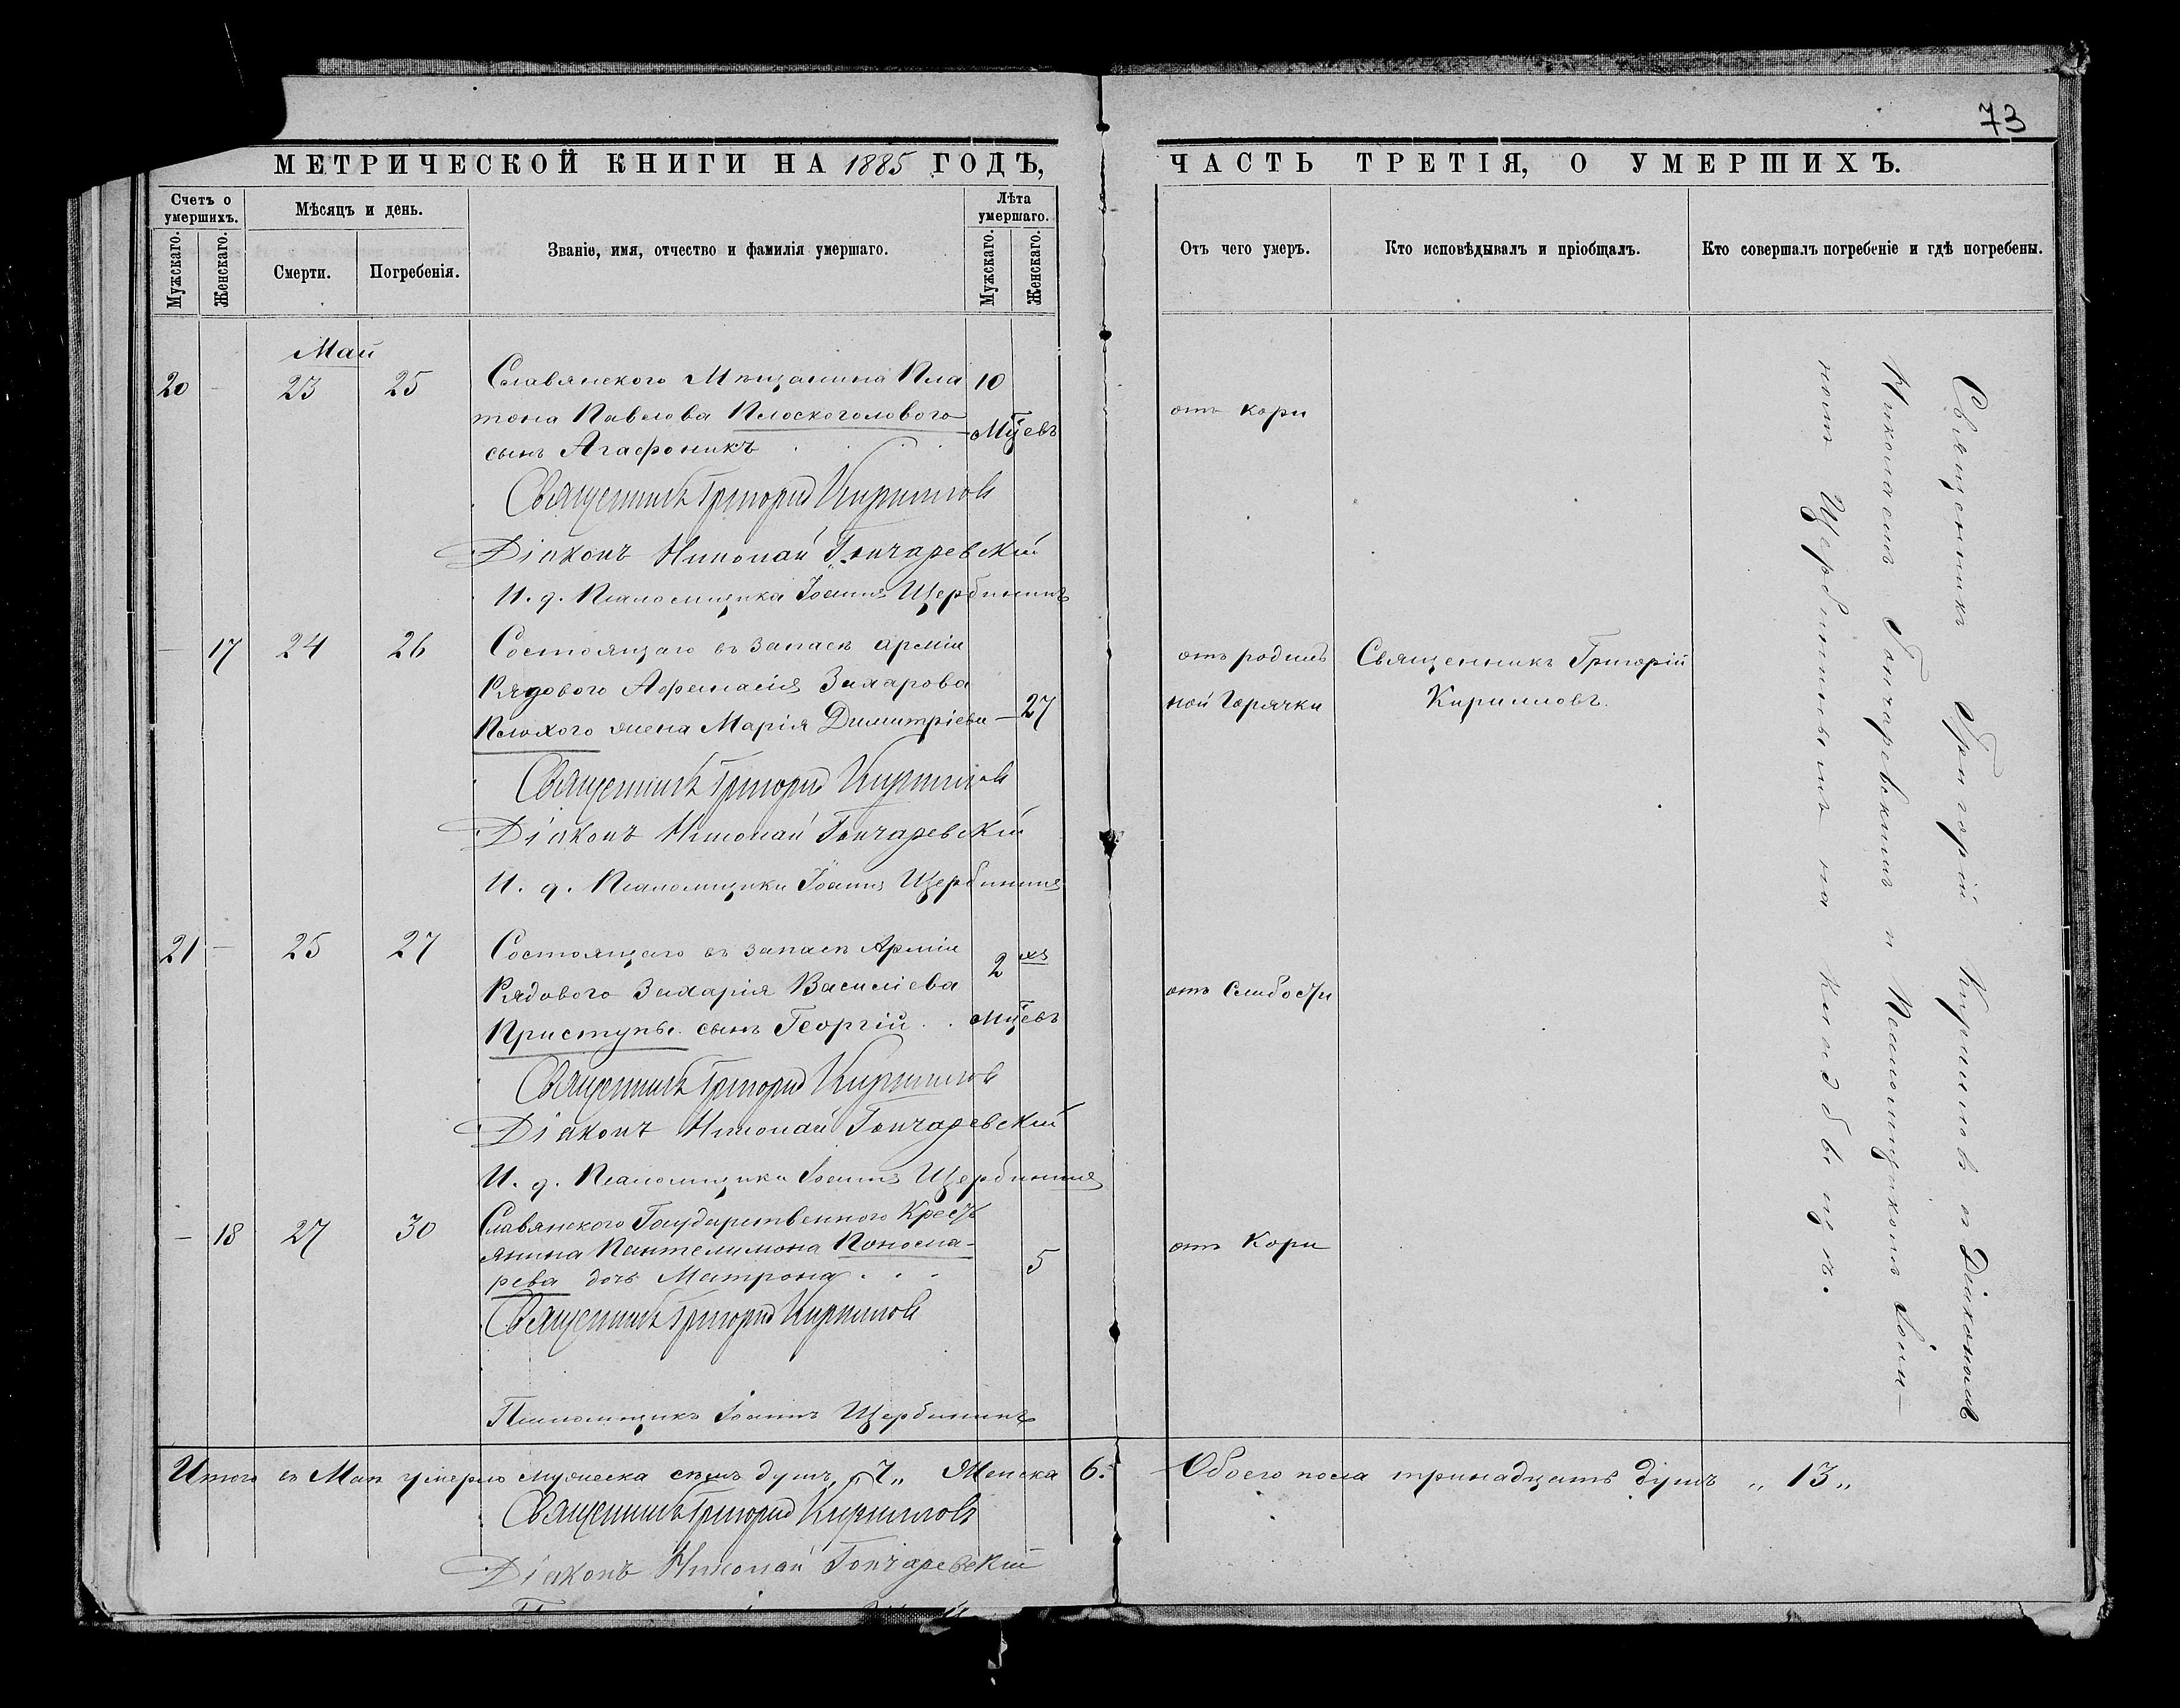 73
МЕТРИЧЕСКОЙ КНИГИ НА 1885 ГОДЪ,
ЧАСТЬ ТРЕТІЯ, О УМЕРШИХЪ.
Счетъ о умершихъ.
Мужскаго.
Женскаго.
Мѣсяцъ и день.
Смерти.
Погребенія.
Званіе, имя, отчество и фамилія умершаго.
Лѣта умершаго.
Мужскаго.
Женскаго.
Отъ чего умеръ.
Кто исповѣдывалъ и пріобщалъ.
Кто совершалъ погребеніе и гдѣ погребены.
Май
20 - 23 25 Славянского Мѣщанина Пла 10
тона Павлова Плоскоголового Мцевъ
сынъ Агафоникъ
отъ кори
Священникъ Григорій Кирилловъ
Діаконъ Николай Гончаревскій
И. д. Псаломщика Іоаннъ Щербининъ
- 17 24 26 Состоящаго въ запасѣ арміи
Рядового Афанасія Захарова
Плохого жена Марія Димитріева - 27
отъ родиль
ной Горячки
Священникъ Григорій
Кирилловъ.
Священникъ Григорій Кирилловъ
Діаконъ Николай Гончаревскій
И. д. Псаломщика Іоаннъ Щербининъ
21 - 25 27 Состоящаго въ запасѣ Арміи 2 хъ
Рядового Захарія Василіева
Приступы сынъ Георгій мцевъ
отъ Слабости
Священникъ Григорій Кирилловъ
Діаконъ Николай Гончаревскій
И. д. Псаломщика Іоаннъ Щербининъ
- 18 27 30 Славянского Государственного Кресть
янина Пантелимона Поноома-
рева дочь Матрона 5
отъ Кори
Священникъ Григорій Кирилловъ
Псаломщикъ Іоаннъ Щербининъ
Священникъ Григорій Кирилловъ съ Діакономъ
Николаемъ Гончаревскимъ и Псаломщикомъ Іоан-
номъ Щербининымъ на кладбищѣ.
Итого въ Маѣ умерло мужеска семь душъ „7„ Женска 6.
Обоего пола тринадцать душъ „13„
Священникъ Григорій Кирилловъ
Діаконъ Николай Гончаревскій